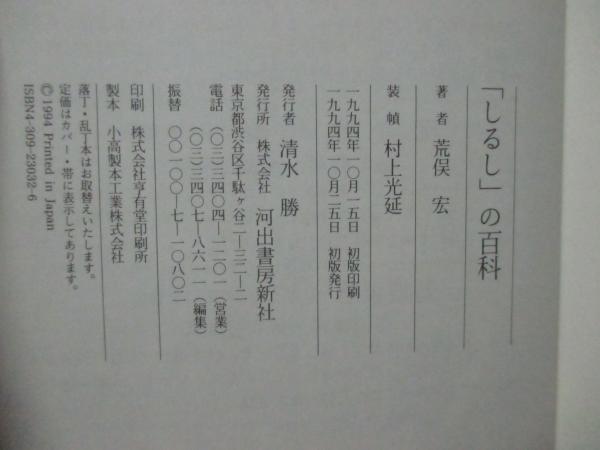 「しるし」の百科
著者 荒俣 宏
装幀 村上光延
一九九四年一〇月一五日 初版印刷
一九九四年一〇月二五日 初版発行
発行者 清水 勝
発行所 株式会社 河出書房新社
東京都渋谷区千駄ヶ谷二—三二—二
電話 (〇三)三四〇四—一二〇一(営業)
(〇三)三四〇四—八六一一(編集)
振替 〇〇一〇〇—七—一〇八〇二
印刷 株式会社亨有堂印刷所
製本 小高製本工業株式会社
落丁・乱丁本はお取替えいたします。
定価はカバー・帯に表示してあります。
©1994 Printed in Japan
ISBN4-309-23032-6